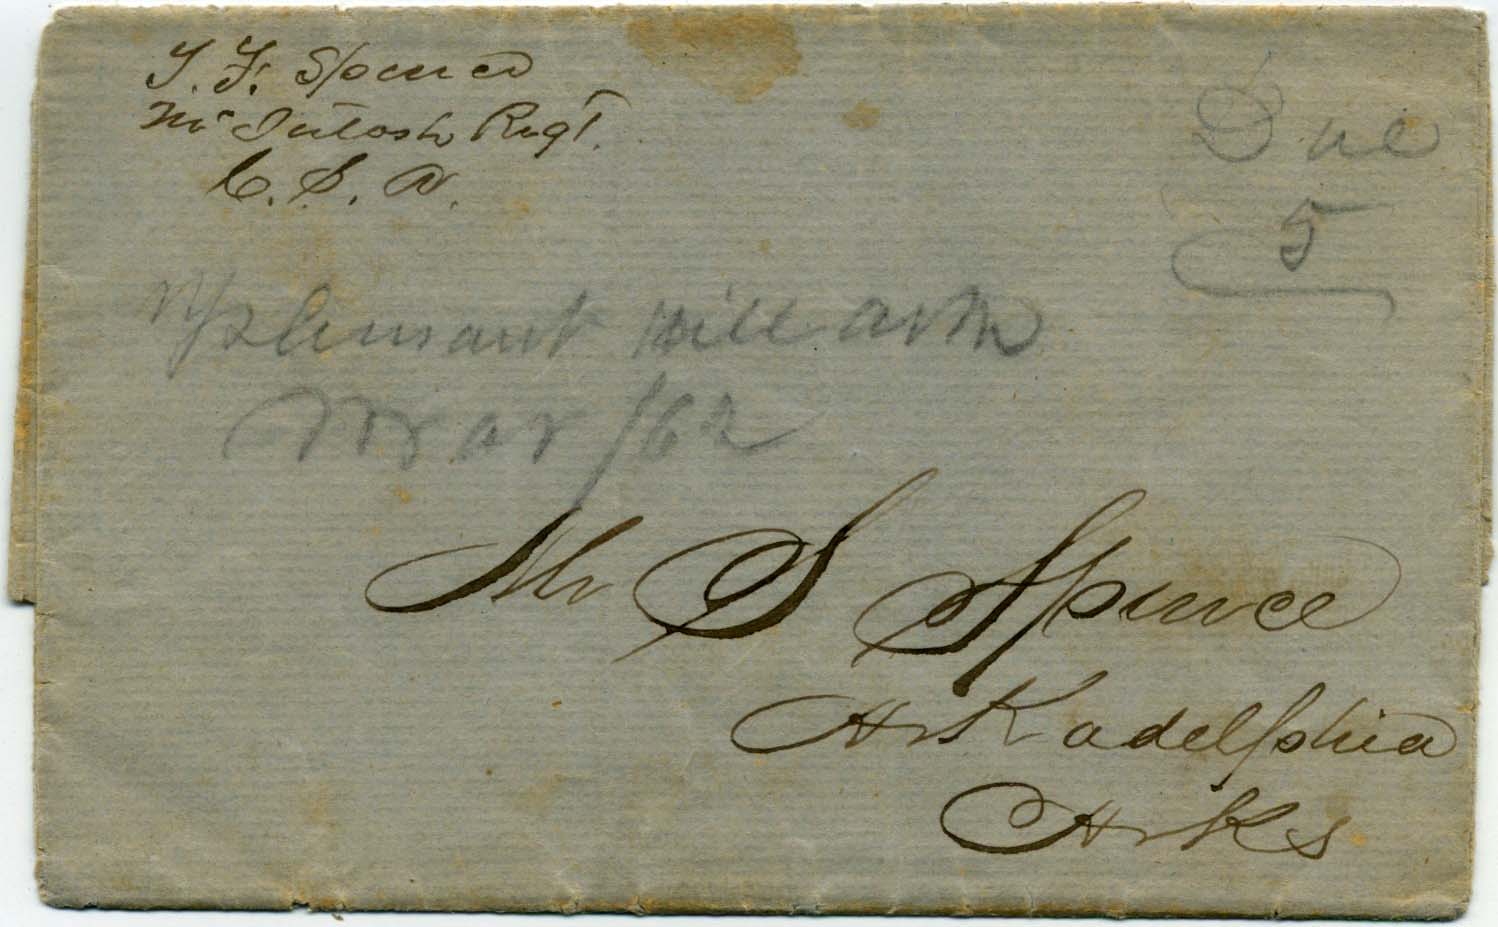 T. F. Spence
Mc Intosh Regt.
C. S. A.
Due
5
Pleasant Hill Ark
Mar /62
Mr S Spence
Arkadelphia
Arks